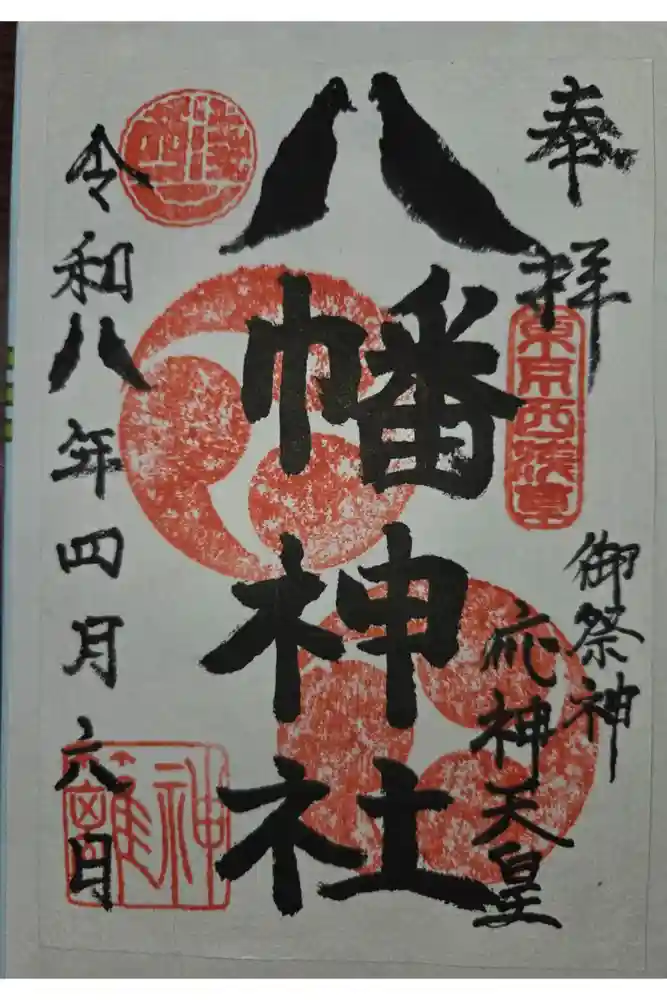 奉拝
東京西浅草
御祭神
応神天皇
八幡神社
令和八年四月六日